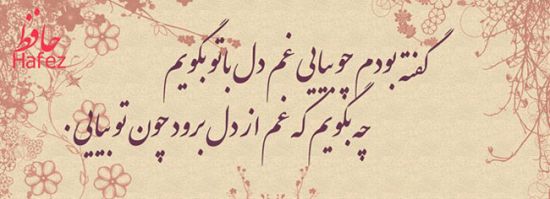 حافظ
Hafez
گفته بودم چو بیایی غم دل با تو بگویم
چه بگویم که غم از دل برود چون تو بیایی.